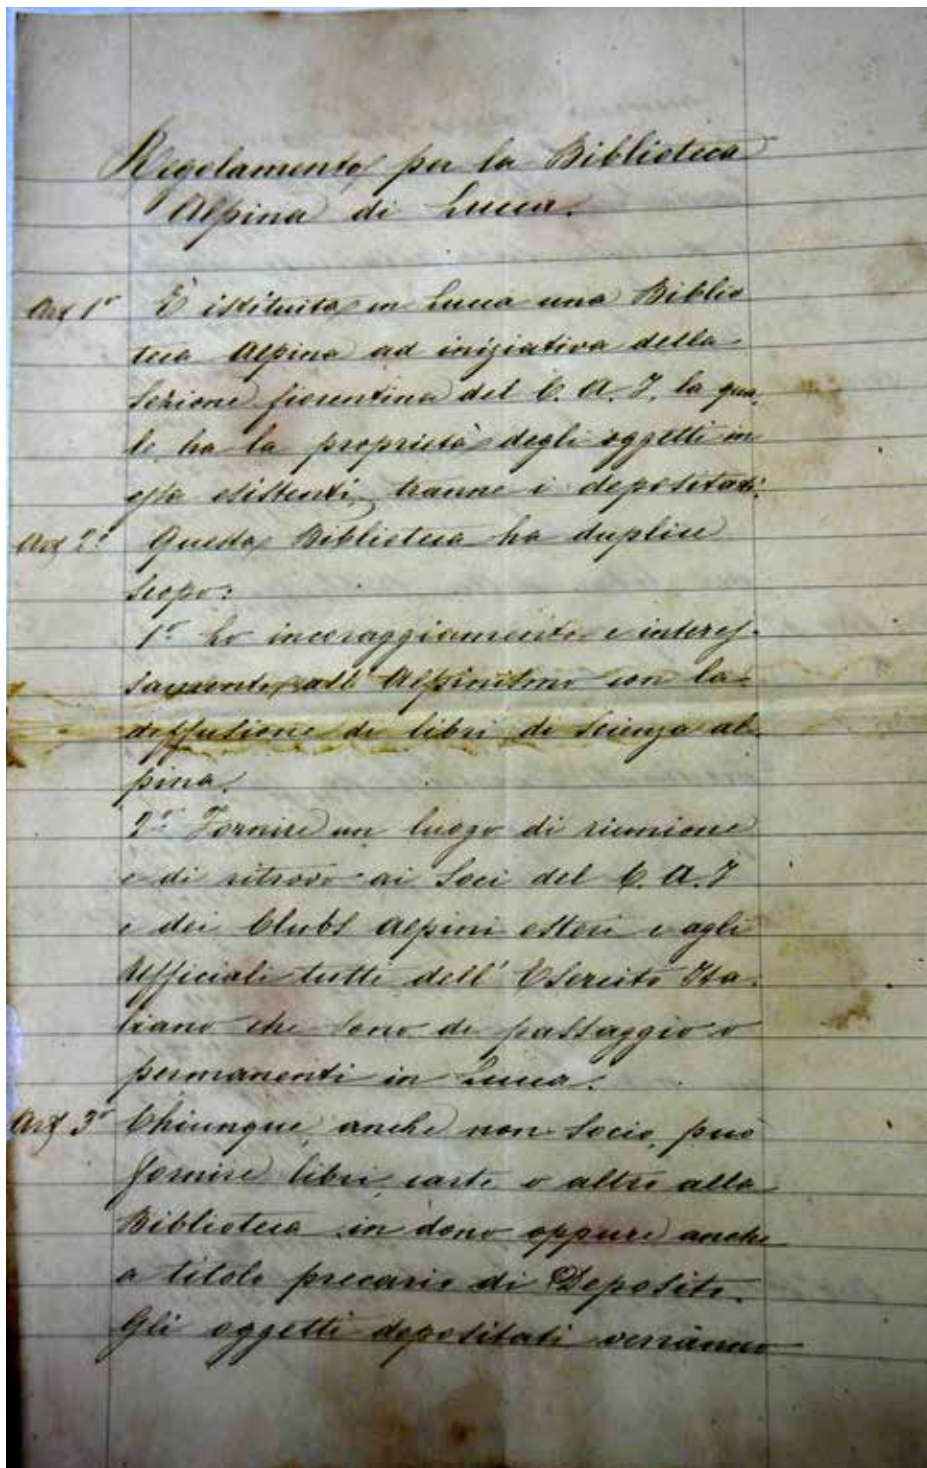 Regolamento per la Biblioteca
Alpina di Lucca.
Art 1° È istituita in Lucca una Biblio
teca Alpina ad iniziativa della
Sezione fiorentina del C. A. I. la qua
le ha la proprietà degli oggetti in
essa esistenti, tranne i depositati.
Art 2° Questa Biblioteca ha duplice
scopo:
1° Lo incoraggiamento e interes-
samento all'Alpinismo con la
diffusione di libri di Scienza al-
pina.
2° Fornire un luogo di riunione
e di ritrovo ai Soci del C. A. I
e dei Clubs alpini esteri e agli
Ufficiali tutti dell' Esercito Ita-
liano che sono di passaggio o
permanenti in Lucca.
Art 3° Chiunque, anche non Socio, può
fornire libri, carte o altro alla
Biblioteca in dono oppure anche
a titolo precario di Deposito.
Gli oggetti depositati verranno